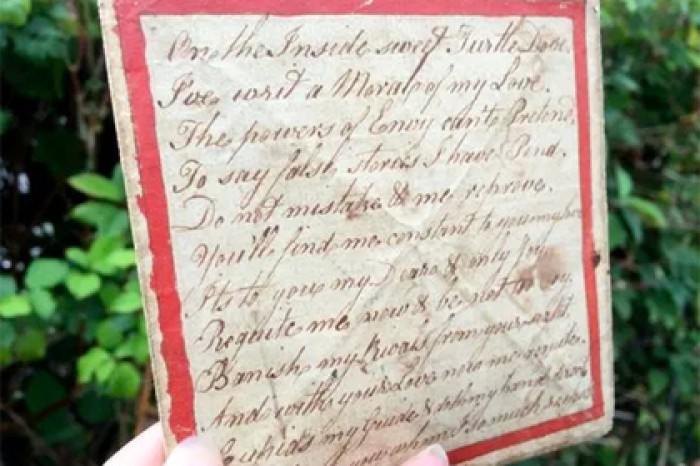 On the Inside sweet Turtle Dove
I've writ a Moral of my Love.
The powers of Envy can't Pretend,
To say false stories I have Pend.
Do not mistake & me rebrove.
You'll find me constant to you my
Its to you my Deare & only Joy
Requite me now & be not Coy
Banish my Rivals from your sight.
And with your Love now me requite.
Cupid's my Guide & my hand
you whom so much